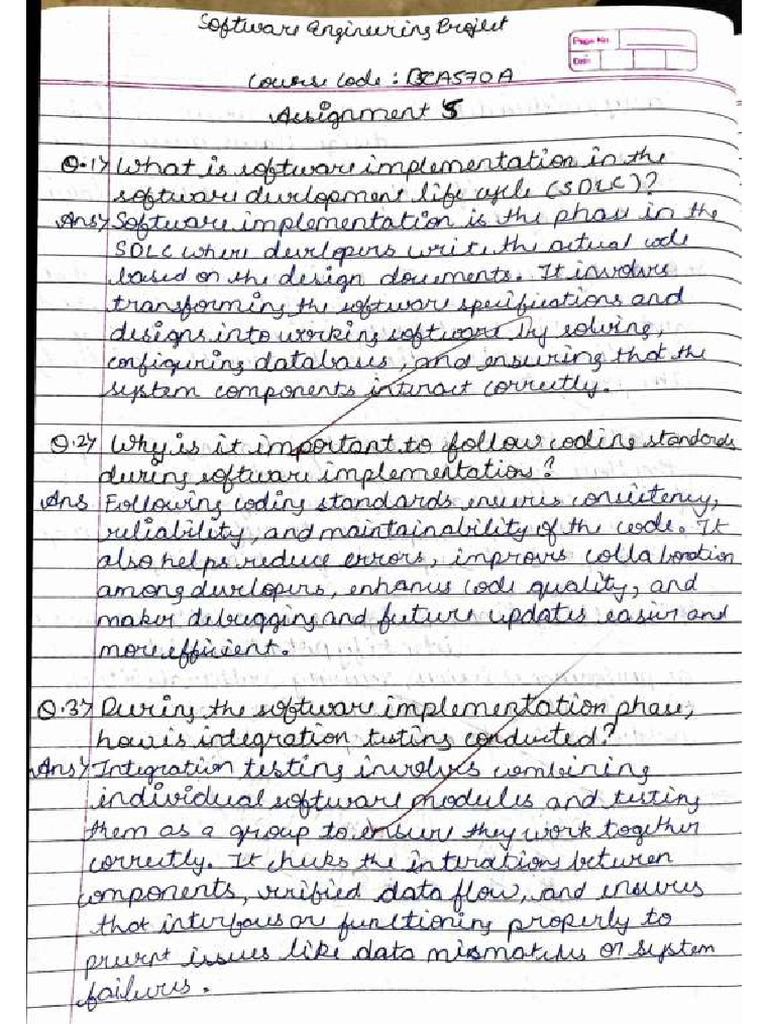 Software Engineering Project
Page No.
Date
Course Code : BCA570A
Assignment 5
Q.1) What is software implementation in the
software development life cycle (SDLC)?
Ans) Software implementation is the phase in the
SDLC where developers write the actual code
based on the design documents. It involves
transforming the software specifications and
designs into working software by solving,
configuring databases, and ensuring that the
system components interact correctly.
Q.2) Why is it important to follow coding standards
during software implementation?
Ans Following coding standards ensures consistency,
reliability, and maintainability of the code. It
also helps reduce errors, improves collaboration
among developers, enhances code quality, and
makes debugging and future updates easier and
more efficient.
Q.3) During the software implementation phase,
how is integration testing conducted?
Ans) Integration testing involves combining
individual software modules and testing
them as a group to ensure they work together
correctly. It checks the interations between
components, verified data flow, and ensures
that interfaces are functioning properly to
prevent issues like data mismatches or system
failures.